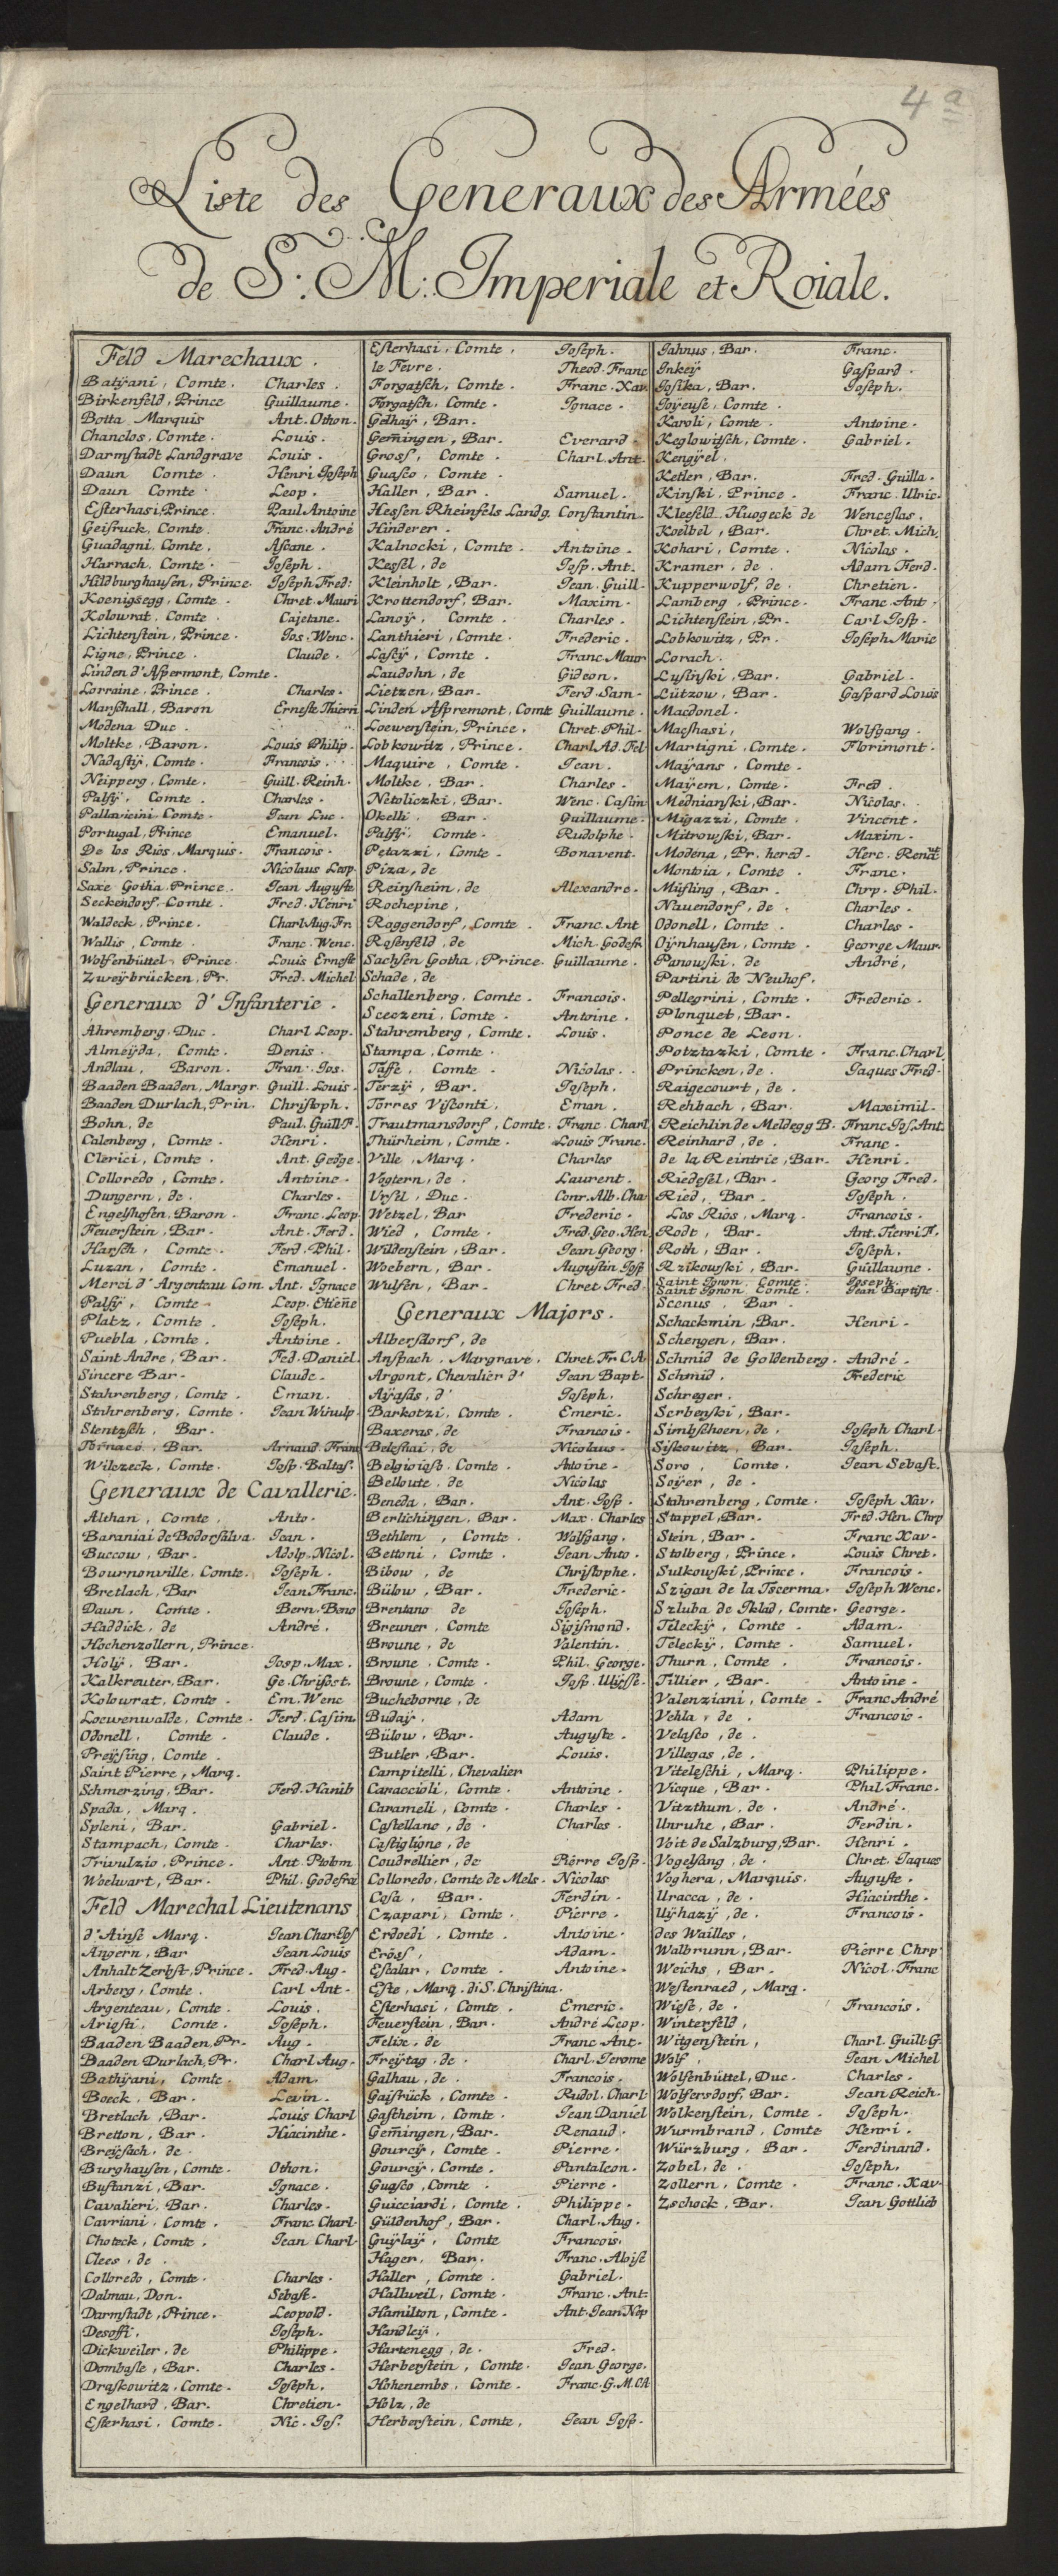 4a
Liste des Generaux des Armées
de S: M: Imperiale et Roiale.
Feld Marechaux.
Batÿani, Comte. Charles.
Birkenfeld, Prince Guillaume.
Botta Marquis Ant. Othon.
Chanclos, Comte. Louis.
Darmstadt Landgrave Louis.
Daun Comte. Henri Joseph
Daun Comte. Leop.
Esterhasi, Prince. Paul Antoine
Geisruck, Comte. Franc. André
Guadagni, Comte. Ascane.
Harrach, Comte. Joseph.
Hildburghausen, Prince. Joseph Fred:
Koenigsegg, Comte. Chret. Mauri
Kolowrat, Comte. Cajetane.
Lichtenstein, Prince. Jos. Wenc.
Ligne, Prince. Claude.
Linden d'Aspermont, Comte.
Lorraine, Prince. Charles.
Marschall, Baron Erneste Thiern
Modena Duc.
Moltke, Baron. Louis Philip.
Nadastÿ, Comte. Francois.
Neipperg, Comte. Guill. Reinh.
Palfÿ, Comte. Charles.
Pallavicini Comte. Jean Luc.
Portugal, Prince Emanuel.
De los Rios, Marquis. Francois.
Salm, Prince. Nicolaus Leop.
Saxe Gotha Prince. Jean Auguste
Seckendorf, Comte. Fred. Henri
Waldeck, Prince. Charl Aug. Fr.
Wallis, Comte. Franc. Wenc.
Wolfenbüttel, Prince Louis Erneste
Zweÿbrücken, Pr. Fred. Michel
Generaux d'Infanterie.
Ahremberg, Duc. Charl Leop.
Almeÿda, Comte. Denis.
Andlau, Baron. Fran. Jos.
Baaden Baaden, Margr. Guill. Louis.
Baaden Durlach, Prin. Christoph.
Bohn, de Paul. Guill F.
Calenberg, Comte. Henri.
Clerici, Comte. Ant. George.
Colloredo, Comte. Antoine.
Dungern, de. Charles.
Engelshofen, Baron. Franc. Leop.
Feuerstein, Bar. Ant. Ferd.
Harsch, Comte. Ferd. Phil.
Luzan, Comte. Emanuel.
Merci d'Argenteau Com. Ant. Ignace
Palfÿ, Comte Leop. Etiene
Platz, Comte. Joseph.
Puebla, Comte. Antoine.
Saint Andre, Bar. Fed. Daniel.
Sincere Bar. Claude.
Stahrenberg, Comte. Eman.
Stahrenberg, Comte. Jean Winulp.
Stentzsch, Bar.
Tornaco, Bar. Arnaud. Franc
Wilczeck, Comte. Josp. Baltas.
Generaux de Cavallerie.
Althan, Comte, Anto.
Baraniai de Bodorfalva. Jean.
Buccow, Bar. Adolp. Nicol.
Bournonville, Comte. Joseph.
Bretlach, Bar Jean Franc.
Daun, Comte. Bern. Beno
Haddick, de André.
Hochenzollern, Prince.
Holÿ, Bar. Josp. Max.
Kalkreuter, Bar. Ge. Christ.
Kolowrat, Comte. Em. Wenc
Loewenwalde, Comte. Ferd. Casim.
Odonell, Comte. Claude.
Preÿsing, Comte.
Saint Pierre, Marq.
Schmerzing, Bar. Ferd. Hanib
Spada, Marq.
Spleni, Bar. Gabriel.
Stampach, Comte. Charles.
Trivulzio, Prince. Ant. Ptolom
Woelwart, Bar. Phil. Godefroi
Feld Marechal Lieutenans
d'Ainse Marq. Jean Charl Jos
Angern, Bar Jean Louis
Anhalt Zerbst, Prince. Fred. Aug.
Arberg, Comte. Carl Ant.
Argenteau, Comte. Louis.
Ariosti, Comte. Joseph.
Baaden Baaden, Pr. Aug.
Baaden Durlach, Pr. Charl Aug.
Bathÿani, Comte. Adam.
Boeck, Bar. Levin.
Bretlach, Bar. Louis Charl
Bretton, Bar. Hiacinthe.
Breÿsach, de.
Burghausen, Comte. Othon.
Bustanzi, Bar. Ignace.
Cavalieri, Bar. Charles.
Cavriani, Comte. Franc. Charl.
Choteck, Comte. Jean Charl.
Clees, de.
Colloredo, Comte. Charles.
Dalmau, Don. Sebast.
Darmstadt, Prince. Leopold.
Desoffi, Joseph.
Dickweiler, de Philippe.
Dombasle, Bar. Charles.
Draskowitz, Comte. Joseph.
Engelhard, Bar. Chretien.
Esterhasi, Comte. Nic. Jos.
Esterhasi, Comte, Joseph.
le Fevre. Theod. Franc
Forgatsch, Comte. Franc. Xav.
Forgatsch, Comte. Ignace.
Gelhaÿ, Bar.
Gemingen, Bar. Everard.
Gross, Comte. Charl. Ant.
Guasco, Comte.
Haller, Bar. Samuel.
Hessen Rheinfels Landg. Constantin.
Hinderer.
Kalnocki, Comte. Antoine.
Kessel, de Josp. Ant.
Kleinholt, Bar. Jean. Guill.
Krottendorf, Bar. Maxim.
Lanoÿ, Comte. Charles.
Lanthieri, Comte. Frederic.
Lascÿ, Comte. Franc. Maur
Laudohn, de Gideon.
Lietzen, Bar. Ferd. Sam.
Linden Aspremont, Comte Guillaume.
Loewenstein, Prince. Chret. Phil.
Lobkowitz, Prince. Charl Ad. Fel
Maquire, Comte. Jean.
Moltke, Bar. Charles.
Netoliczki, Bar. Wenc. Casim
Okelli, Bar. Guillaume.
Palfÿ, Comte. Rudolphe.
Petazzi, Comte. Bonavent.
Piza, de
Reinsheim, de Alexandre.
Rochepine,
Roggendorf, Comte. Franc. Ant
Rosenfeld, de Mich. Godefr
Sachsen Gotha, Prince. Guillaume.
Schade, de
Schallenberg, Comte. Francois.
Sceczeni, Comte. Antoine.
Stahremberg, Comte. Louis.
Stampa, Comte.
Taffe, Comte. Nicolas.
Terzÿ, Bar. Joseph.
Torres Visconti, Eman.
Trautmansdorf, Comte. Franc. Charl
Thürheim, Comte. Louis Franc.
Ville, Marq. Charles
Vogtern, de. Laurent.
Ursel, Duc. Conr. Alb. Cha
Wetzel, Bar Frederic.
Wied, Comte. Fred. Geo. Hen.
Wildenstein, Bar. Jean Georg.
Woebern, Bar. Augustin Josp
Wulfen, Bar. Chret Fred.
Generaux Majors.
Albersdorf, de
Anspach, Margrave. Chret. Fr. C. A.
Argont, Chevalier d' Jean Bapt.
Aÿasas, d' Joseph.
Barkotzi, Comte. Emeric.
Baxeras, de Francois.
Belesthai, de Nicolaus.
Belgioioso, Comte. Antoine.
Belloute, de Nicolas
Beneda, Bar. Ant. Josp.
Berlichingen, Bar. Max. Charles
Bethlem, Comte. Wolfgang.
Bettoni, Comte. Jean Anto.
Bibow, de Christophe.
Bülow, Bar. Frederic.
Brentano de Joseph.
Breuner, Comte Sigismond.
Broune, de Valentin.
Broune, Comte. Phil. George.
Broune, Comte. Josp. Ulÿsse.
Bucheborne, de
Budaÿ. Adam
Bülow, Bar. Auguste.
Butler, Bar. Louis.
Campitelli, Chevalier
Caraccioli, Comte. Antoine.
Carameli, Comte. Charles.
Castellano, de. Charles.
Castiglione, de
Coudrellier, de Pierre Josp.
Colloredo, Comte de Mels. Nicolas
Cosa, Bar. Ferdin.
Czapari, Comte. Pierre.
Erdoedi, Comte. Antoine.
Eröss, Adam.
Escalar, Comte. Antoine.
Este, Marq. di S. Christina.
Esterhasi, Comte. Emeric.
Feuerstein, Bar. André Leop.
Felix, de Franc. Ant.
Freÿtag, de. Charl. Jerome
Galhau, de. Francois.
Gaisrück, Comte. Rudol. Charl
Gastheim, Comte. Jean Daniel
Gemingen, Bar. Renaud.
Gourcÿ, Comte. Pierre.
Gourcÿ, Comte. Pantaleon.
Guasco, Comte. Pierre.
Guicciardi, Comte. Philippe.
Güldenhof, Bar. Charl. Aug.
Guÿlaÿ, Comte Francois.
Hager, Bar. Franc. Aloise
Haller, Comte. Gabriel.
Hallweil, Comte. Franc. Ant.
Hamilton, Comte. Ant. Jean Nep
Handleÿ.
Hartenegg, de. Fred.
Herberstein, Comte. Jean George.
Hohenembs, Comte. Franc. G. M. CA
Holz, de
Herberstein, Comte, Jean Josp.
Jahnus, Bar. Franc.
Inkeÿ Gaspard.
Josika, Bar. Joseph.
Joÿeuse, Comte.
Karoli, Comte. Antoine.
Keglowitsch, Comte. Gabriel.
Kengÿel.
Ketler, Bar. Fred. Guilla.
Kinski, Prince. Franc. Ulric.
Kleefeld, Huogeck de Wenceslas.
Koelbel, Bar. Chret. Mich.
Kohari, Comte. Nicolas.
Kramer, de. Adam Ferd.
Kupperwolf, de. Chretien.
Lamberg, Prince. Franc. Ant.
Lichtenstein, Pr. Carl Josp.
Lobkowitz, Pr. Joseph Marie
Lorach.
Lusinski, Bar. Gabriel.
Lützow, Bar. Gaspard Louis
Macdonel.
Macshasi, Wolfgang.
Martigni, Comte. Florimont.
Maÿans, Comte.
Maÿern, Comte. Fred.
Mednianski, Bar. Nicolas.
Migazzi, Comte. Vincent.
Mitrowski, Bar. Maxim.
Modena, Pr. hered. Herc. Renat
Montoia, Comte. Franc.
Müfling, Bar. Chrp. Phil.
Nauendorf, de. Charles.
Odonell, Comte. Charles.
Oÿnhausen, Comte. George Maur.
Panowski, de André,
Partini de Neuhof.
Pellegrini, Comte. Frederic.
Plonquet, Bar.
Ponce de Leon.
Potztazki, Comte. Franc. Charl.
Princken, de. Jaques Fred.
Raigecourt, de.
Rehbach, Bar. Maximil.
Reichlin de Meldegg B. Franc Jos. Ant.
Reinhard, de. Franc.
de la Reintrie, Bar. Henri.
Riedesel, Bar. Georg Fred.
Ried, Bar. Joseph.
Los Rios, Marq. Francois.
Rodt, Bar. Ant. Tierri F.
Roth, Bar. Joseph.
Rzikowski, Bar. Guillaume.
Saint Ignon, Comte. Joseph.
Saint Ignon Comte. Jean Baptiste.
Scenus, Bar.
Schackmin, Bar. Henri.
Schengen, Bar.
Schmid de Goldenberg. André.
Schmid. Frederic
Schreger.
Serbenski, Bar.
Simbschoen, de. Joseph Charl.
Siskowitz, Bar. Joseph.
Soro, Comte. Jean Sebast.
Soÿer, de.
Stahremberg, Comte. Joseph Xav.
Stappel, Bar. Fred. Hen. Chrp
Stein, Bar. Franc Xav.
Stolberg, Prince. Louis Chret.
Sulkowski, Prince. Francois.
Szigan de la Tscerma. Joseph Wenc.
Szluba de Iklad, Comte. George.
Teleckÿ, Comte. Adam.
Teleckÿ, Comte. Samuel.
Thurn, Comte. Francois.
Tillier, Bar. Antoine.
Valenziani, Comte. Franc André
Vehla, de. Francois.
Velasco, de.
Villegas, de.
Viteleschi, Marq. Philippe.
Vicque, Bar. Phil Franc.
Vitzthum, de. André.
Unruhe, Bar. Ferdin.
Voit de Salzburg, Bar. Henri.
Vogelsang, de. Chret. Jaques
Voghera, Marquis. Auguste.
Uracca, de. Hiacinthe.
Uÿhazÿ, de. Francois.
des Wailles,
Walbrunn, Bar. Pierre Chrp
Weichs, Bar. Nicol. Franc
Westenraed, Marq.
Wiese, de. Francois.
Winterfeld,
Witgenstein, Charl. Guill. G.
Wolf, Jean Michel
Wolfenbüttel, Duc. Charles.
Wolfersdorf, Bar. Jean Reich.
Wolkenstein, Comte. Joseph.
Wurmbrand, Comte Henri.
Würzburg, Bar. Ferdinand.
Zobel, de. Joseph.
Zollern, Comte Franc. Xav.
Zschock, Bar. Jean Gottlieb